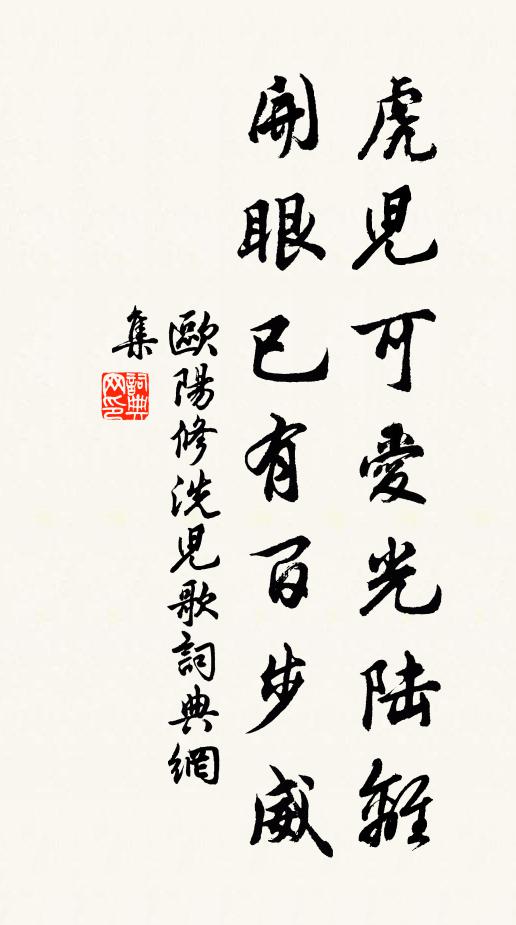 虎児可愛光陸離
開眼已有百歩威
歐陽修洗児歌詞典網
集
詞典
网印